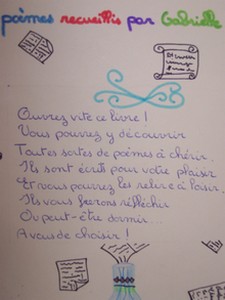 poèmes recueillis par Gabrielle
Ouvrez vite ce livre !
Vous pourrez y découvrir
Toutes sortes de poèmes à chérir.
Ils sont écrits pour votre plaisir
Et vous pourrez les relire à loisir.
Ils vous feront réfléchir
Ou peut-être dormir...
A vous de choisir !